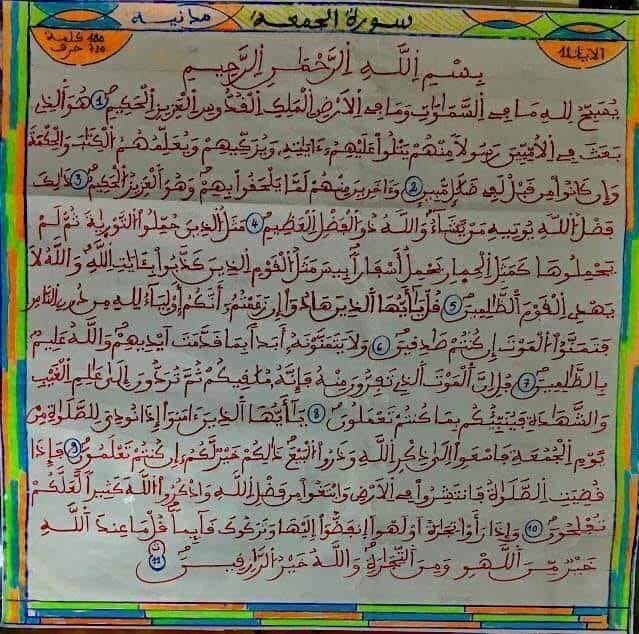 سورة الجمعة مدنية
180 كلمة
720 حرف
الآيات 11
بسم الله الرحمن الرحيم
يسبح لله ما في السموات وما في الأرض الملك القدوس العزيز الحكيم 1 هو الذي
بعث في الأميين رسولا منهم يتلوا عليهم ءايته ويزكيهم ويعلمهم الكتاب والحكمة
وإن كانوا من قبل لفي ضلل مبين 2 وءاخرين منهم لما يلحقوا بهم وهو العزيز الحكيم 3 ذلك
فضل الله يوتيه من يشاء والله ذو الفضل العظيم 4 مثل الذين حملوا التورية ثم لم
يحملوها كمثل الحمار يحمل أسفارا بيس مثل القوم الذين كذبوا بئايت الله والله لا
يهدي القوم الظلمين 5 قل يأيها الذين هادوا إن زعمتم أنكم أولياء لله من دون الناس
فتمنوا الموت إن كنتم صدقين 6 ولا يتمنونه أبدا بما قدمت أيديهم والله عليم
بالظلمين 7 قل إن الموت الذي تفرون منه فإنه ملقيكم ثم تردون إلى علم الغيب
والشهدة فينبئكم بما كنتم تعملون 8 يأيها الذين ءامنوا إذا نودي للصلوة من
يوم الجمعة فاسعوا إلى ذكر الله وذروا البيع ذلكم خير لكم إن كنتم تعلمون 9 فإذا
قضيت الصلوة فانتشروا في الأرض وابتغوا من فضل الله واذكروا الله كثيرا لعلكم
تفلحون 10 وإذا رأوا تجرة أو لهوا انفضوا إليها وتركوك قائما قل ما عند الله
خير من اللهو ومن التجرة والله خير الرازقين 11